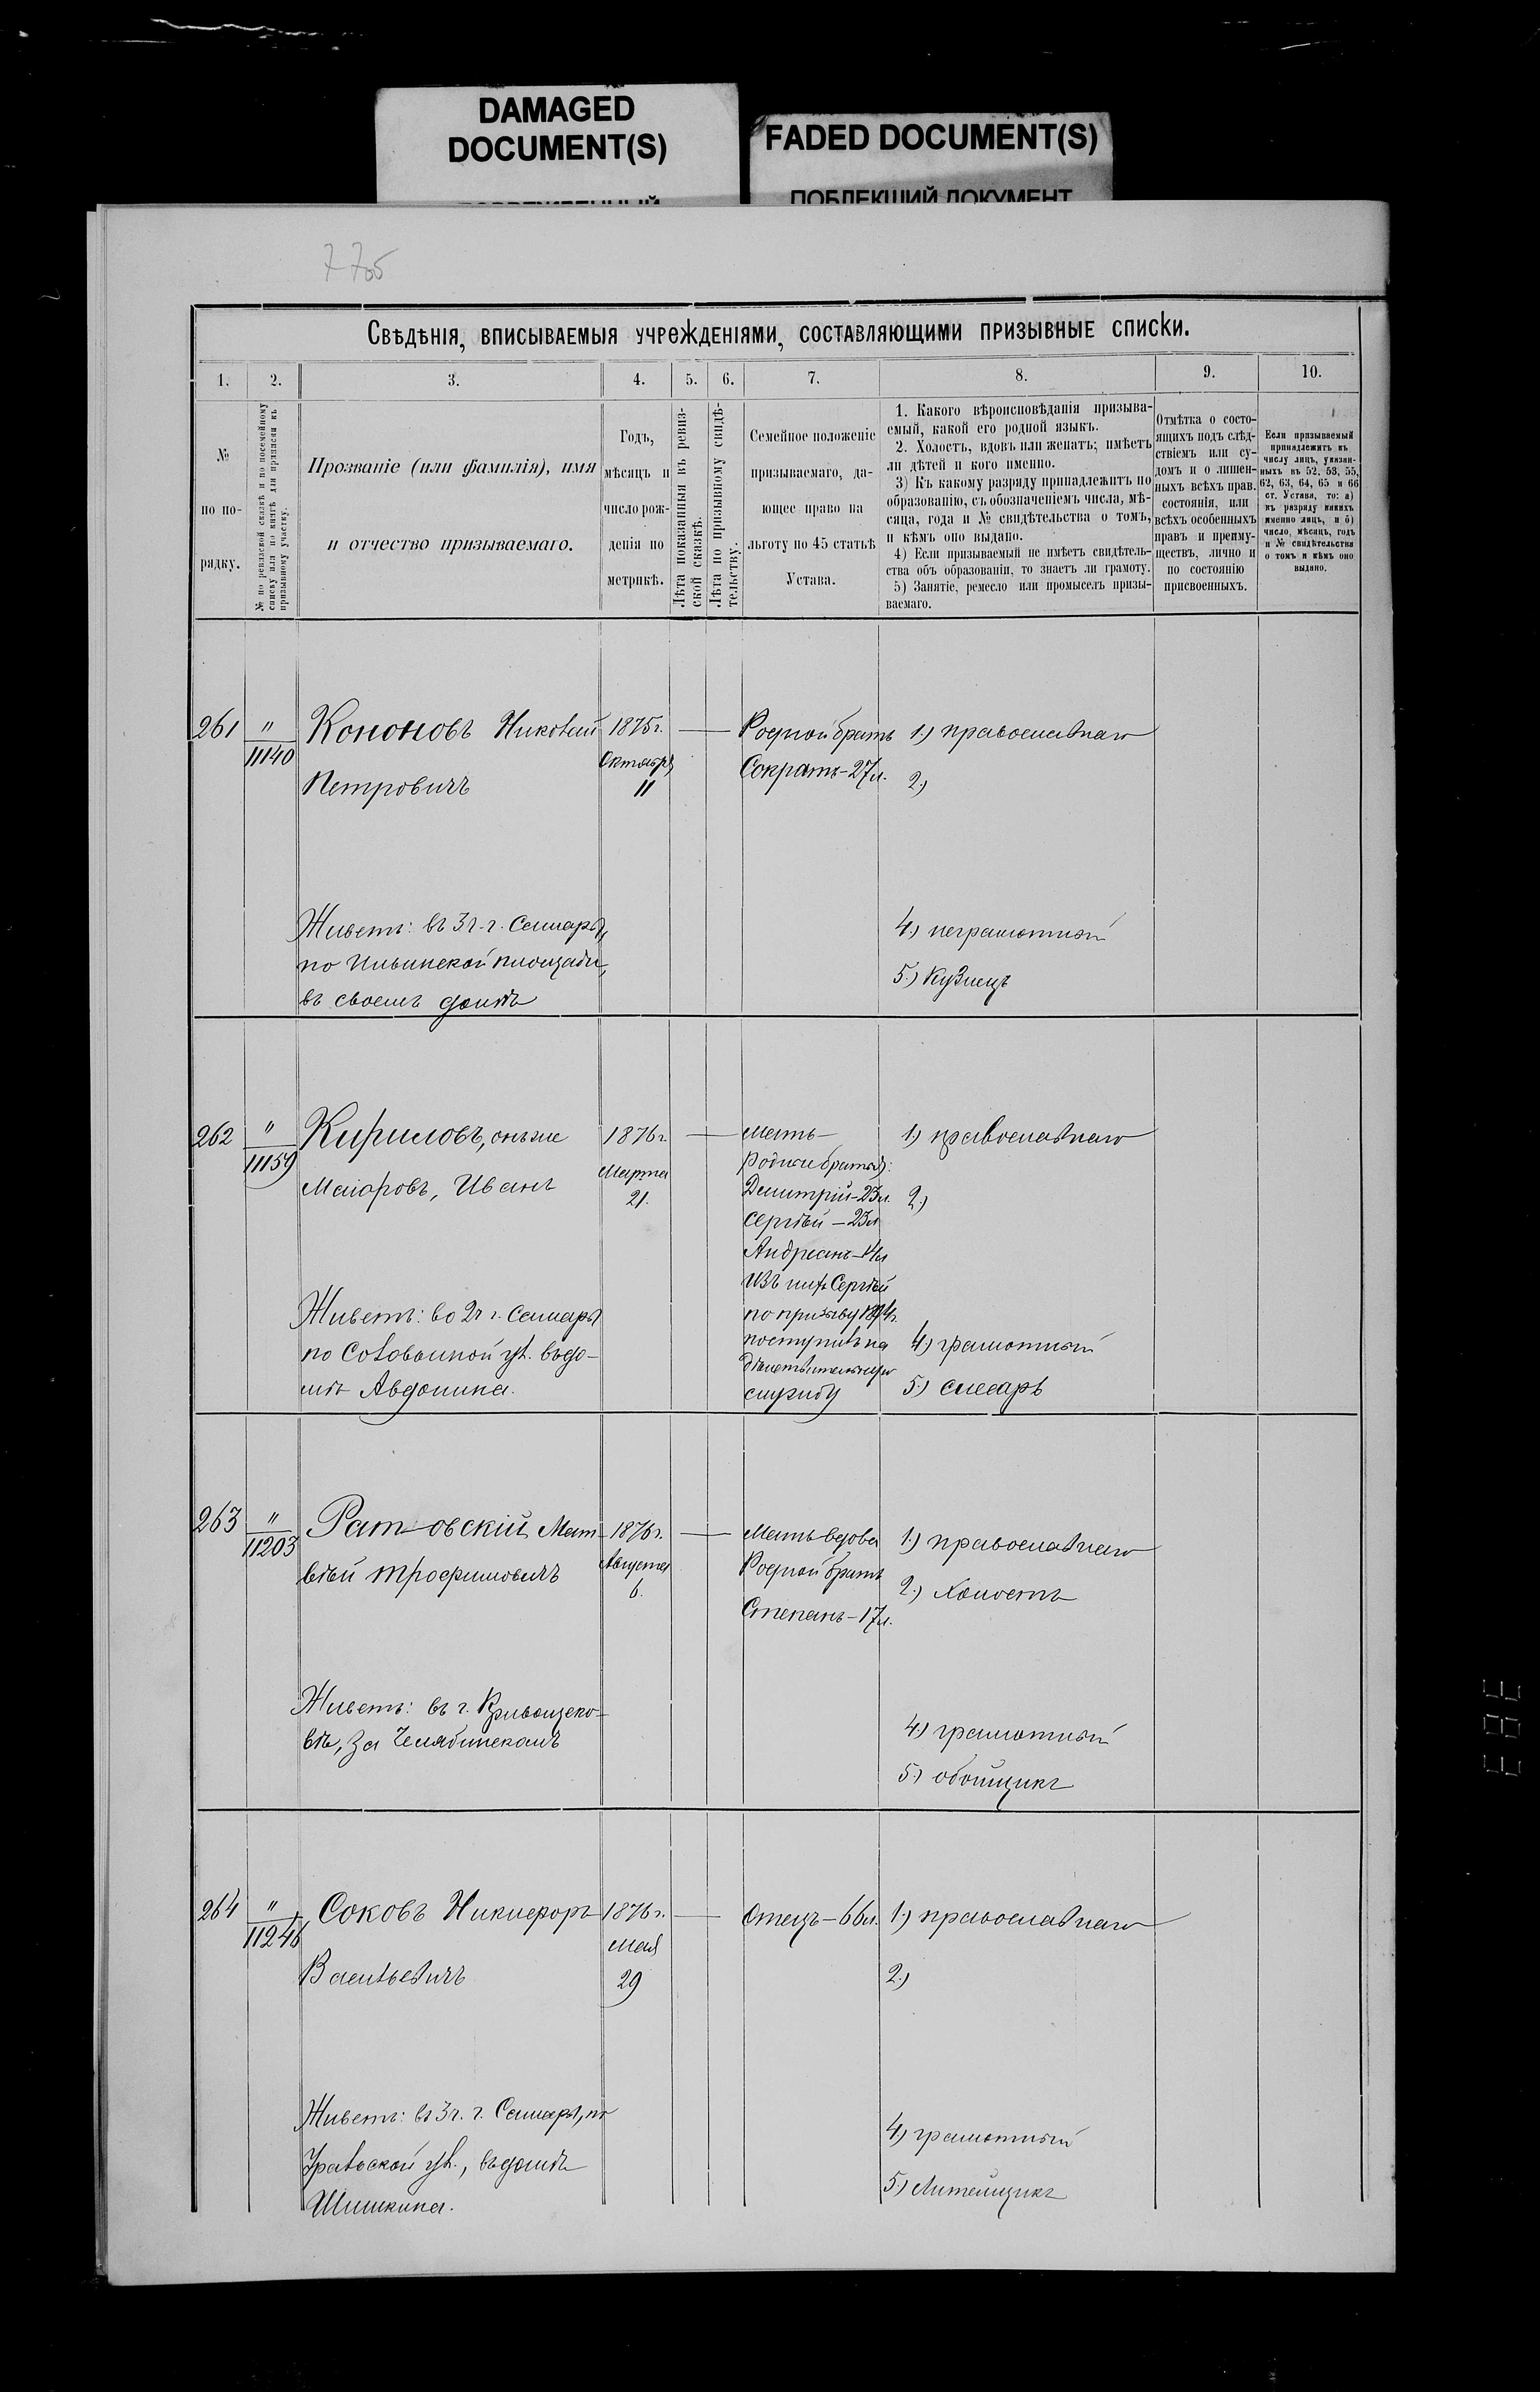 DAMAGED
DOCUMENT(S)
FADED DOCUMENT(S)
ПОБЛЕКШИЙ ДОКУМЕНТ
7 705
Свѣдѣнія, вписываемыя учрежденіями, составляющими призывные списки.
1.
2.
3.
4.
5.
6.
7.
8.
9.
10.
№
по по-
рядку.
№ по ревизской сказкѣ и по посемейному
списку или по книгѣ для приписки къ
призывному участку.
Прозваніе (или фамилія), имя
и отчество призываемаго.
Годъ,
мѣсяцъ и
число рож-
денія по
метрикѣ.
Лѣта показанныя въ ревиз-
ской сказкѣ.
Лѣта по призывному свидѣ-
тельству.
Семейное положеніе
призываемаго, да-
ющее право на
льготу по 45 статьѣ
Устава.
1. Какого вѣроисповѣданія призыва-
емый, какой его родной языкъ.
2. Холостъ, вдовъ или женатъ; имѣетъ
ли дѣтей и кого именно.
3) Къ какому разряду принадлежитъ по
образованію, съ обозначеніемъ числа, мѣ-
сяца, года и № свидѣтельства о томъ,
и кѣмъ оно выдано.
4) Если призываемый не имѣетъ свидѣтель-
ства объ образованіи, то знаетъ ли грамоту.
5) Занятіе, ремесло или промыселъ призы-
ваемаго.
Отмѣтка о состо-
ящихъ подъ слѣд-
ствіемъ или су-
домъ и о лишен-
ныхъ всѣхъ прав.
состоянія, или
всѣхъ особенныхъ
правъ и преиму-
ществъ, лично и
по состоянію
присвоенныхъ.
Если призываемый
принадлежитъ къ
числу лицъ, указан-
ныхъ въ 52, 53, 55,
62, 63, 64, 65 и 66
ст. Устава, то: а)
къ разряду какихъ
именно лицъ, и б)
число, мѣсяцъ, годъ
и № свидѣтельства
о томъ и кѣмъ оно
выдано.
261
"
11140
Кононовъ Николай
Петровичъ
1875г.
Октября
11
Родной братъ
Сократъ-27л.
1.) православнаго
2.)
Живетъ: въ 3ч. г. Самары,
по Ильинской площади,
въ своемъ домѣ
4.) неграмотный
5.) Кузнецъ
262
"
11159
Кириловъ, онъ же
Маіоровъ, Иванъ
1876г.
Марта
21.
Мать-
Родные братья:
Дмитрій-23л.
Сергѣй-23л
Андреанъ-14л
Изъ нихъ Сергѣй
по призыву 1894г.
поступилъ на
дѣйствительную
службу
1) православнаго
2.)
Живетъ: во 2ч г. Самары
по Соловьиной ул. въ до-
мѣ Авдонина.
4.) грамотный
5.) слесарь
263
"
11203
Ратовскій Мат-
вѣй Трофимовичъ
1876г.
Августа
6.
Мать вдова
Родной братъ
Степанъ-17л.
1.) православнаго
2.) Холостъ
Живетъ: въ г. Кривощеко-
вѣ, за Челябинскомъ
4.) грамотный
5.) обойщикъ
264
"
11246
Соковъ Никифоръ
Васильевичъ
1876г.
Мая
29
Отецъ-66л.
1.) православнаго
2.)
Живетъ: въ 3ч. г. Самары, по
Уральской ул., въ домѣ
Шишкина.
4.) грамотный
5.) Литейщикъ
387